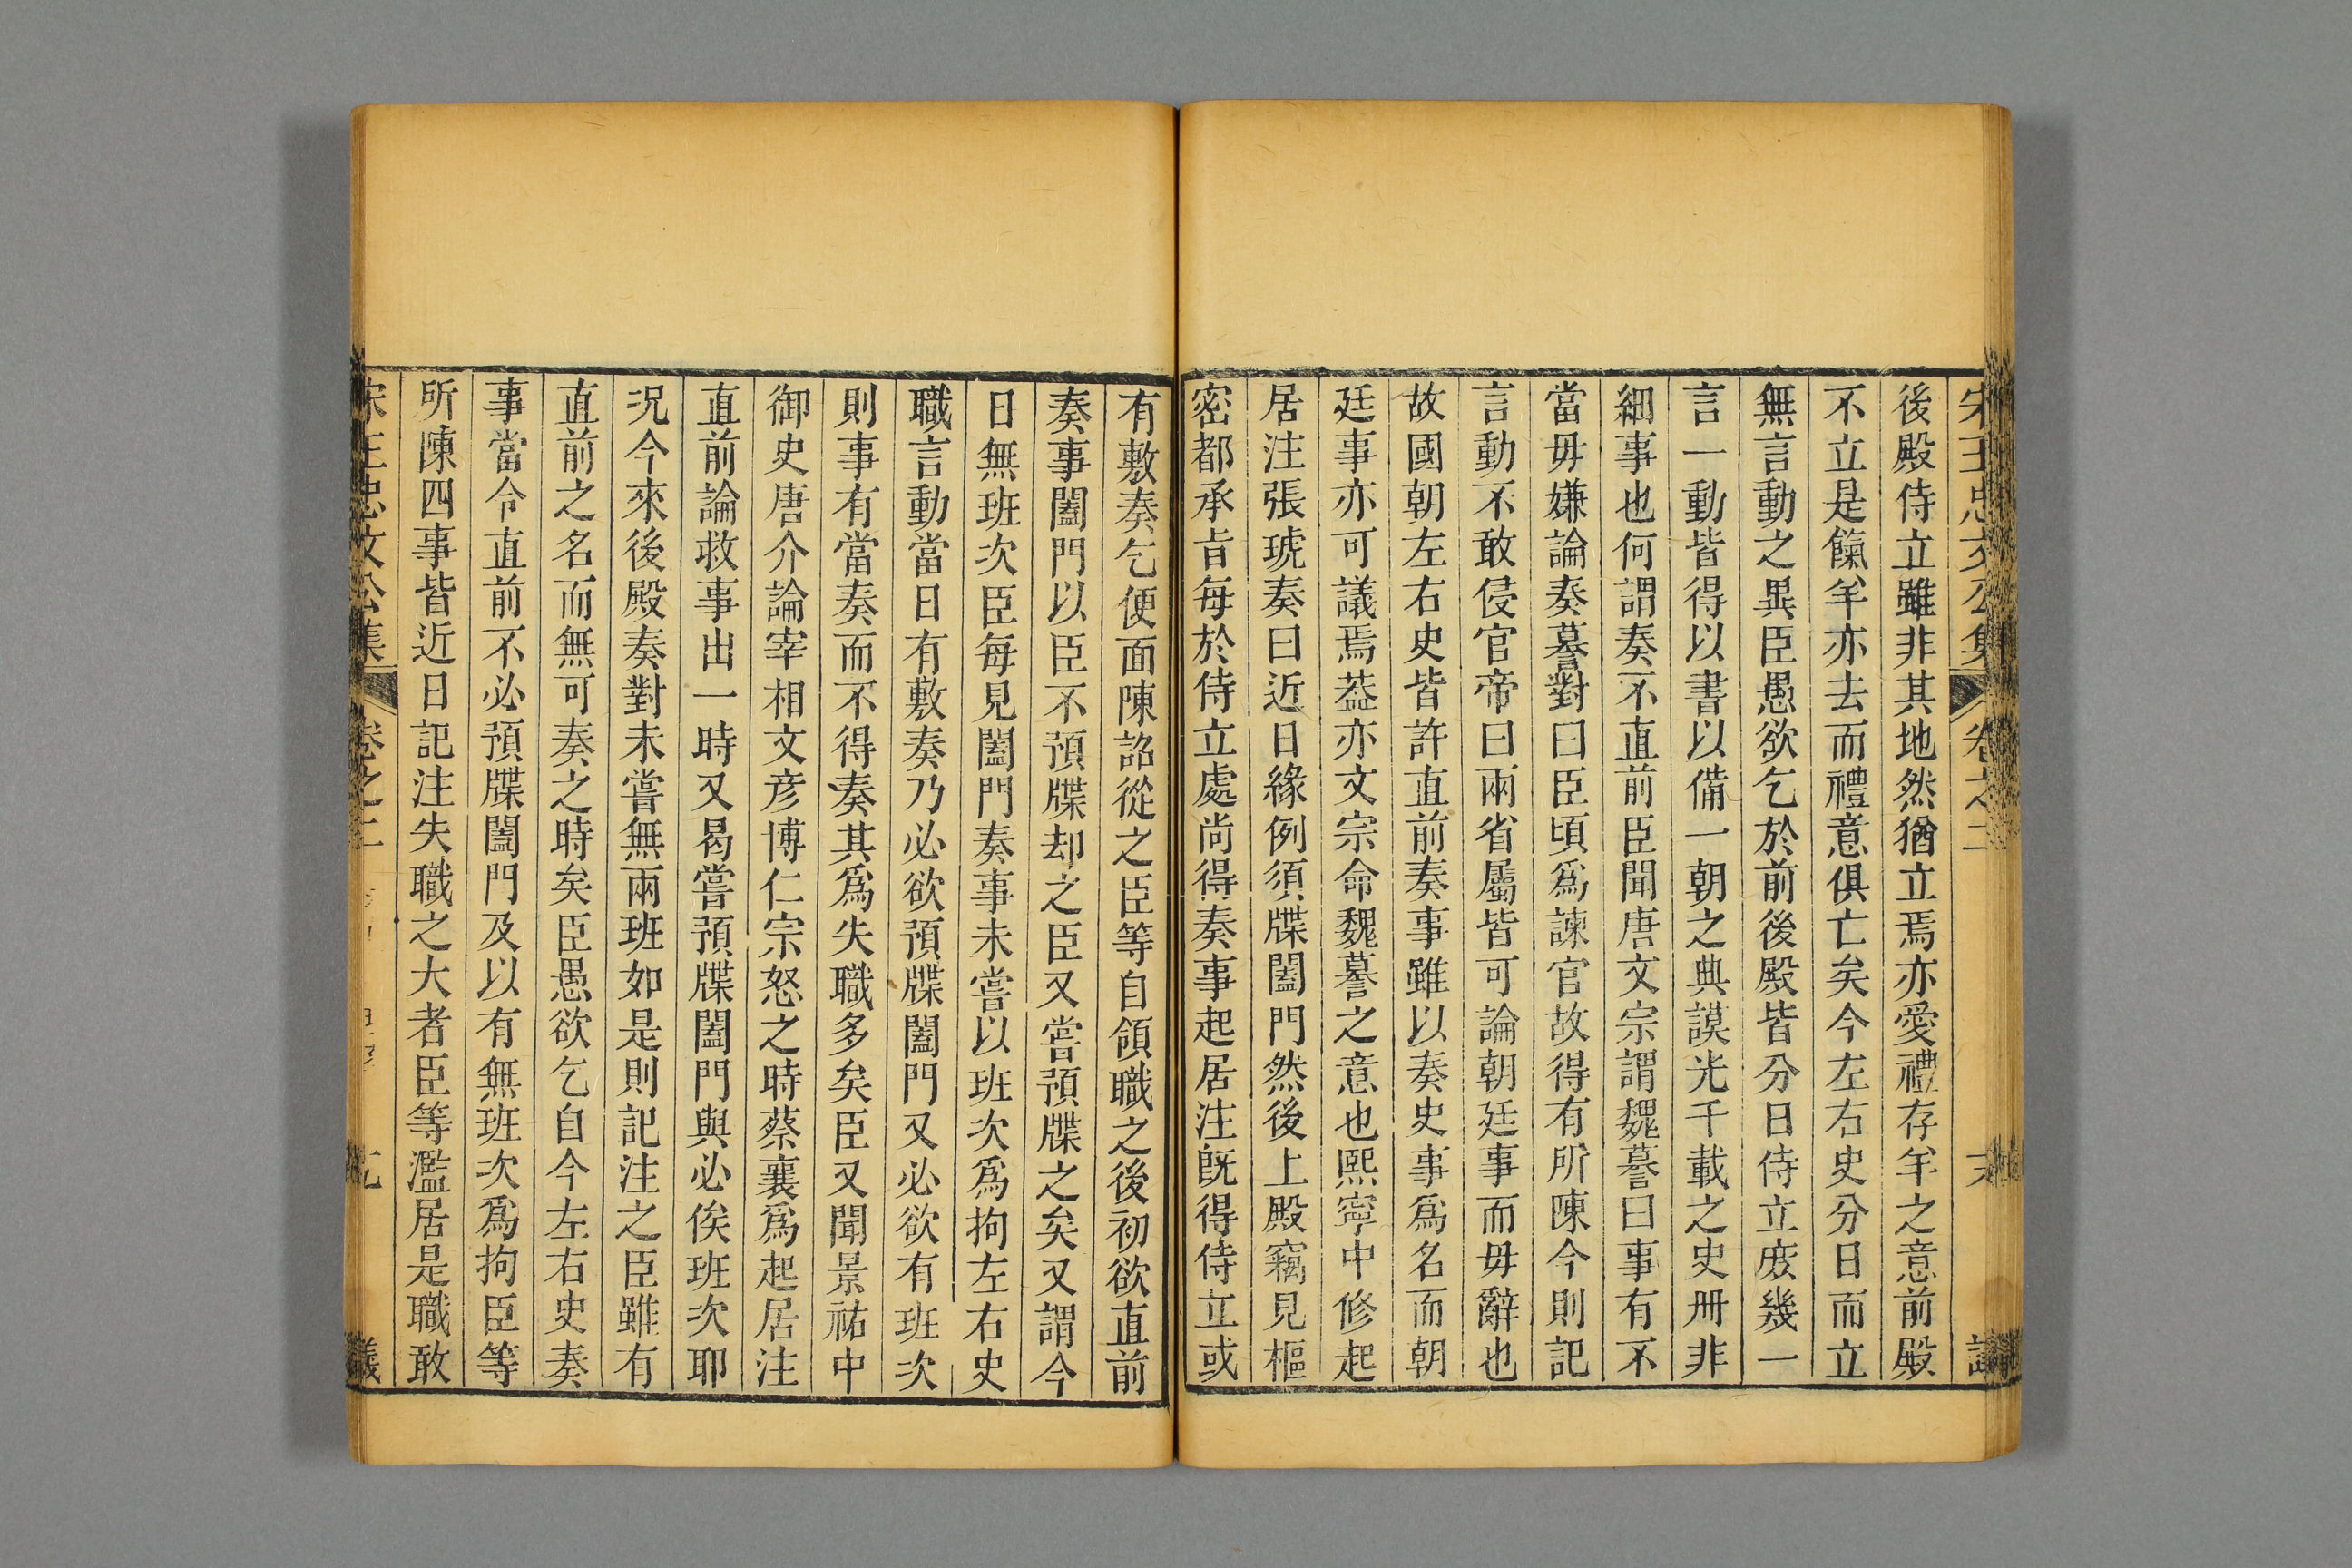 宋王忠文公集 卷之二
後殿侍立雖非其地然猶立焉亦愛禮存羊之意前殿
不立是餼羊亦去而禮意俱亡矣今左右史分日而立
無言動之異臣愚欲乞於前後殿皆分日侍立庻幾一
言一動皆得以書以備一朝之典謨光千載之史册非
細事也何謂奏不直前臣聞唐文宗謂魏謩曰事有不
當毋嫌論奏謩對曰臣頃爲諫官故得有所陳今則記
言動不敢侵官帝曰兩省屬皆可論朝廷事而毋辭也
故國朝左右史皆許直前奏事雖以奏史事爲名而朝
廷事亦可議焉葢亦文宗命魏謩之意也熙寧中修起
居注張琥奏曰近日緣例須牒閤門然後上殿竊見樞
密都承㫖每於侍立處尚得奏事起居注旣得侍立或
有敷奏乞便面陳詔從之臣等自領職之後初欲直前
奏事閤門以臣不預牒却之臣又嘗預牒之矣又謂今
日無班次臣每見閤門奏事未嘗以班次爲拘左右史
職言動當日有敷奏乃必欲預牒閤門又必欲有班次
則事有當奏而不得奏其爲失職多矣臣又聞景祐中
御史唐介論宰相文彦博仁宗怒之時蔡襄爲起居注
直前論救事出一時又曷嘗預牒閤門與必俟班次耶
况今來後殿奏對未嘗無兩班如是則記注之臣雖有
直前之名而無可奏之時矣臣愚欲乞自今左右史奏
事當令直前不必預牒閤門及以有無班次爲拘臣等
所陳四事皆近日記注失職之大者臣等濫居是職敢
宋王忠文公集 卷之二 九